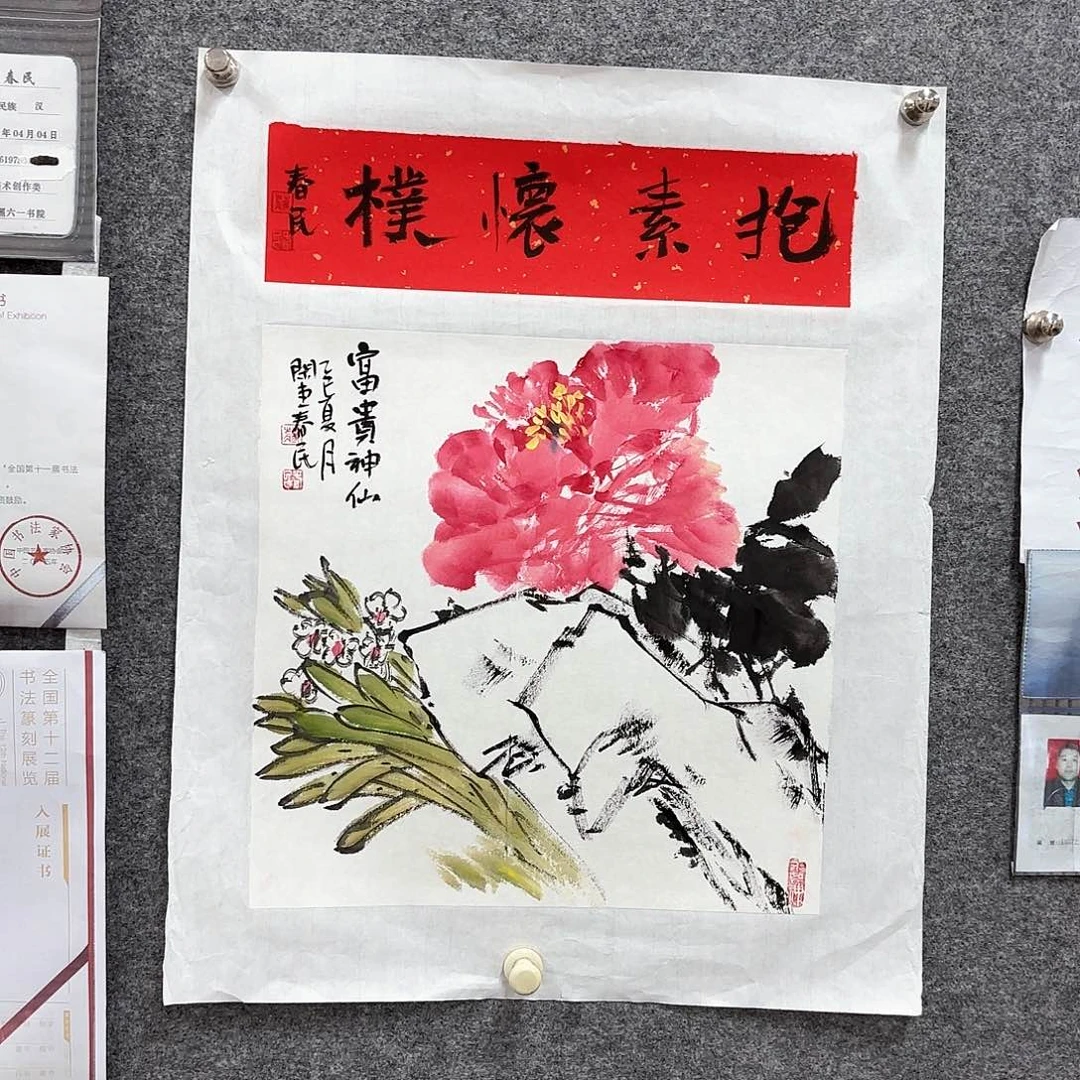 抱素懷樸
春民
富貴神仙
乙巳夏月
閩東春民
春民
民族 汉
年04月04日
6197
术创作类
六一书院
书
of Exhibition
“全国第十一届书法
鼓励。
中国书法家协会
全国第十二届
书法篆刻展览
入展证书